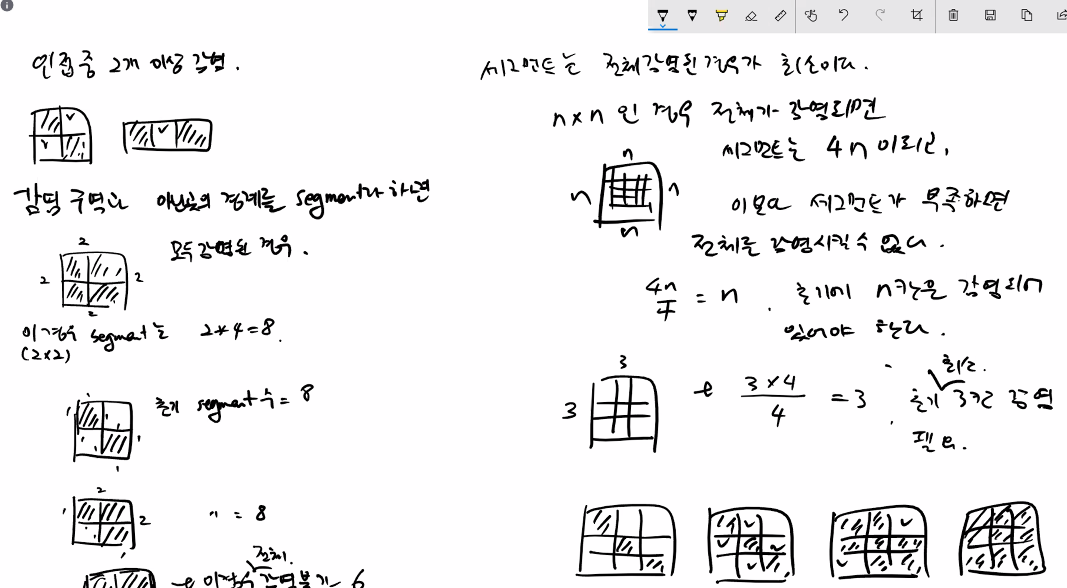 인접중 2개 이상 감염.
감염 구역과 아닌곳의 경계를 segment라 하면
2
2 2
2
모두 감염된 경우.
이경우 segment는 2*4=8.
(2x2)
초기 segment수 = 8
2
2
" = 8
전체
6
세그먼트는 전체감염된경우가 최소이다.
nxn 인 경우 전체가 감염되면
세그먼트는 4n 이되고,
n
n n
n
이보다 세그먼트가 부족하면
전체를 감염시킬수 없다.
4n/4 = n. 초기에 n칸은 감염되어
있어야 한다.
3
3
3x4/4 = 3
최소
초기 3칸 감염
필요.